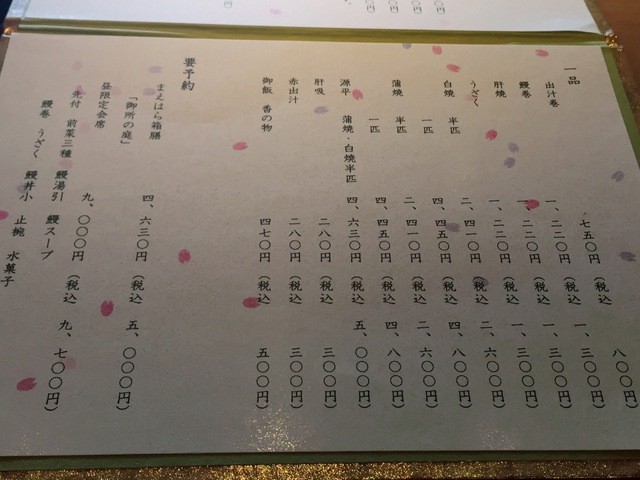 一品
出汁巻 七五〇円（税込 八〇〇円）
鰻巻 一、二二〇円（税込 一、三〇〇円）
肝焼 一、二二〇円（税込 一、三〇〇円）
うざく 一、二二〇円（税込 一、三〇〇円）
白焼 半匹 二、四一〇円（税込 二、六〇〇円）
一匹 四、四五〇円（税込 四、八〇〇円）
蒲焼 半匹 二、四一〇円（税込 二、六〇〇円）
一匹 四、四五〇円（税込 四、八〇〇円）
源平 蒲焼・白焼半匹 四、六三〇円（税込 五、〇〇〇円）
肝吸 二八〇円（税込 三〇〇円）
赤出汁 二八〇円（税込 三〇〇円）
御飯 香の物 四七〇円（税込 五〇〇円）
要予約
まえはら箱膳 四、六三〇円（税込 五、〇〇〇円）
「御所の庭」
昼限定会席 九、〇〇〇円（税込 九、七〇〇円）
先付 前菜三種 鰻湯引 鰻スープ
鰻巻 うざく 鰻丼小 止椀 水菓子